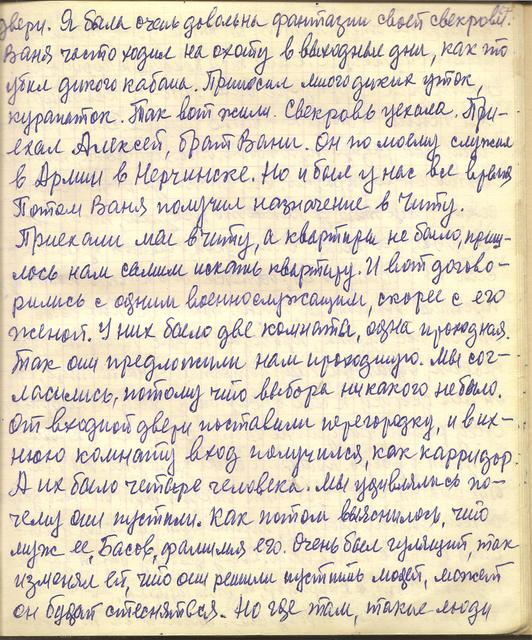 двери. Я была очень довольна фантазии своей свекрови.
Ваня часто ходил на охоту в выходные дни, как то
убил дикого кабана. Приносил много диких уток,
курапаток. Так вот жили. Свекровь уехала. При-
ехал Алексей, брат Вани. Он по моему служил
в Армии в Нерчинске. Но и был у нас все время
Потом Ваня получил назначение в Читу.
Приехали мы в Читу, а квартиры не было, приш-
лось нам самим искать квартиру. И вот догово-
рились с одним военнослужащим, скорее с его
женой. У них было две комнаты, одна проходная.
Так они предложили нам проходную. Мы сог-
ласились, потому что выбора никакого не было.
От входной двери поставили перегородку, и в их-
нюю комнату вход получился, как карридор.
А их было четыре человека. Мы удивлялись по-
чему они пустили. Как потом выяснилось, что
муж ее, Басов, фамилия его. Очень был гулящий, так
изменял ей, что они решили пустить людей, может
он будет стесняться. Но где там, такие люди